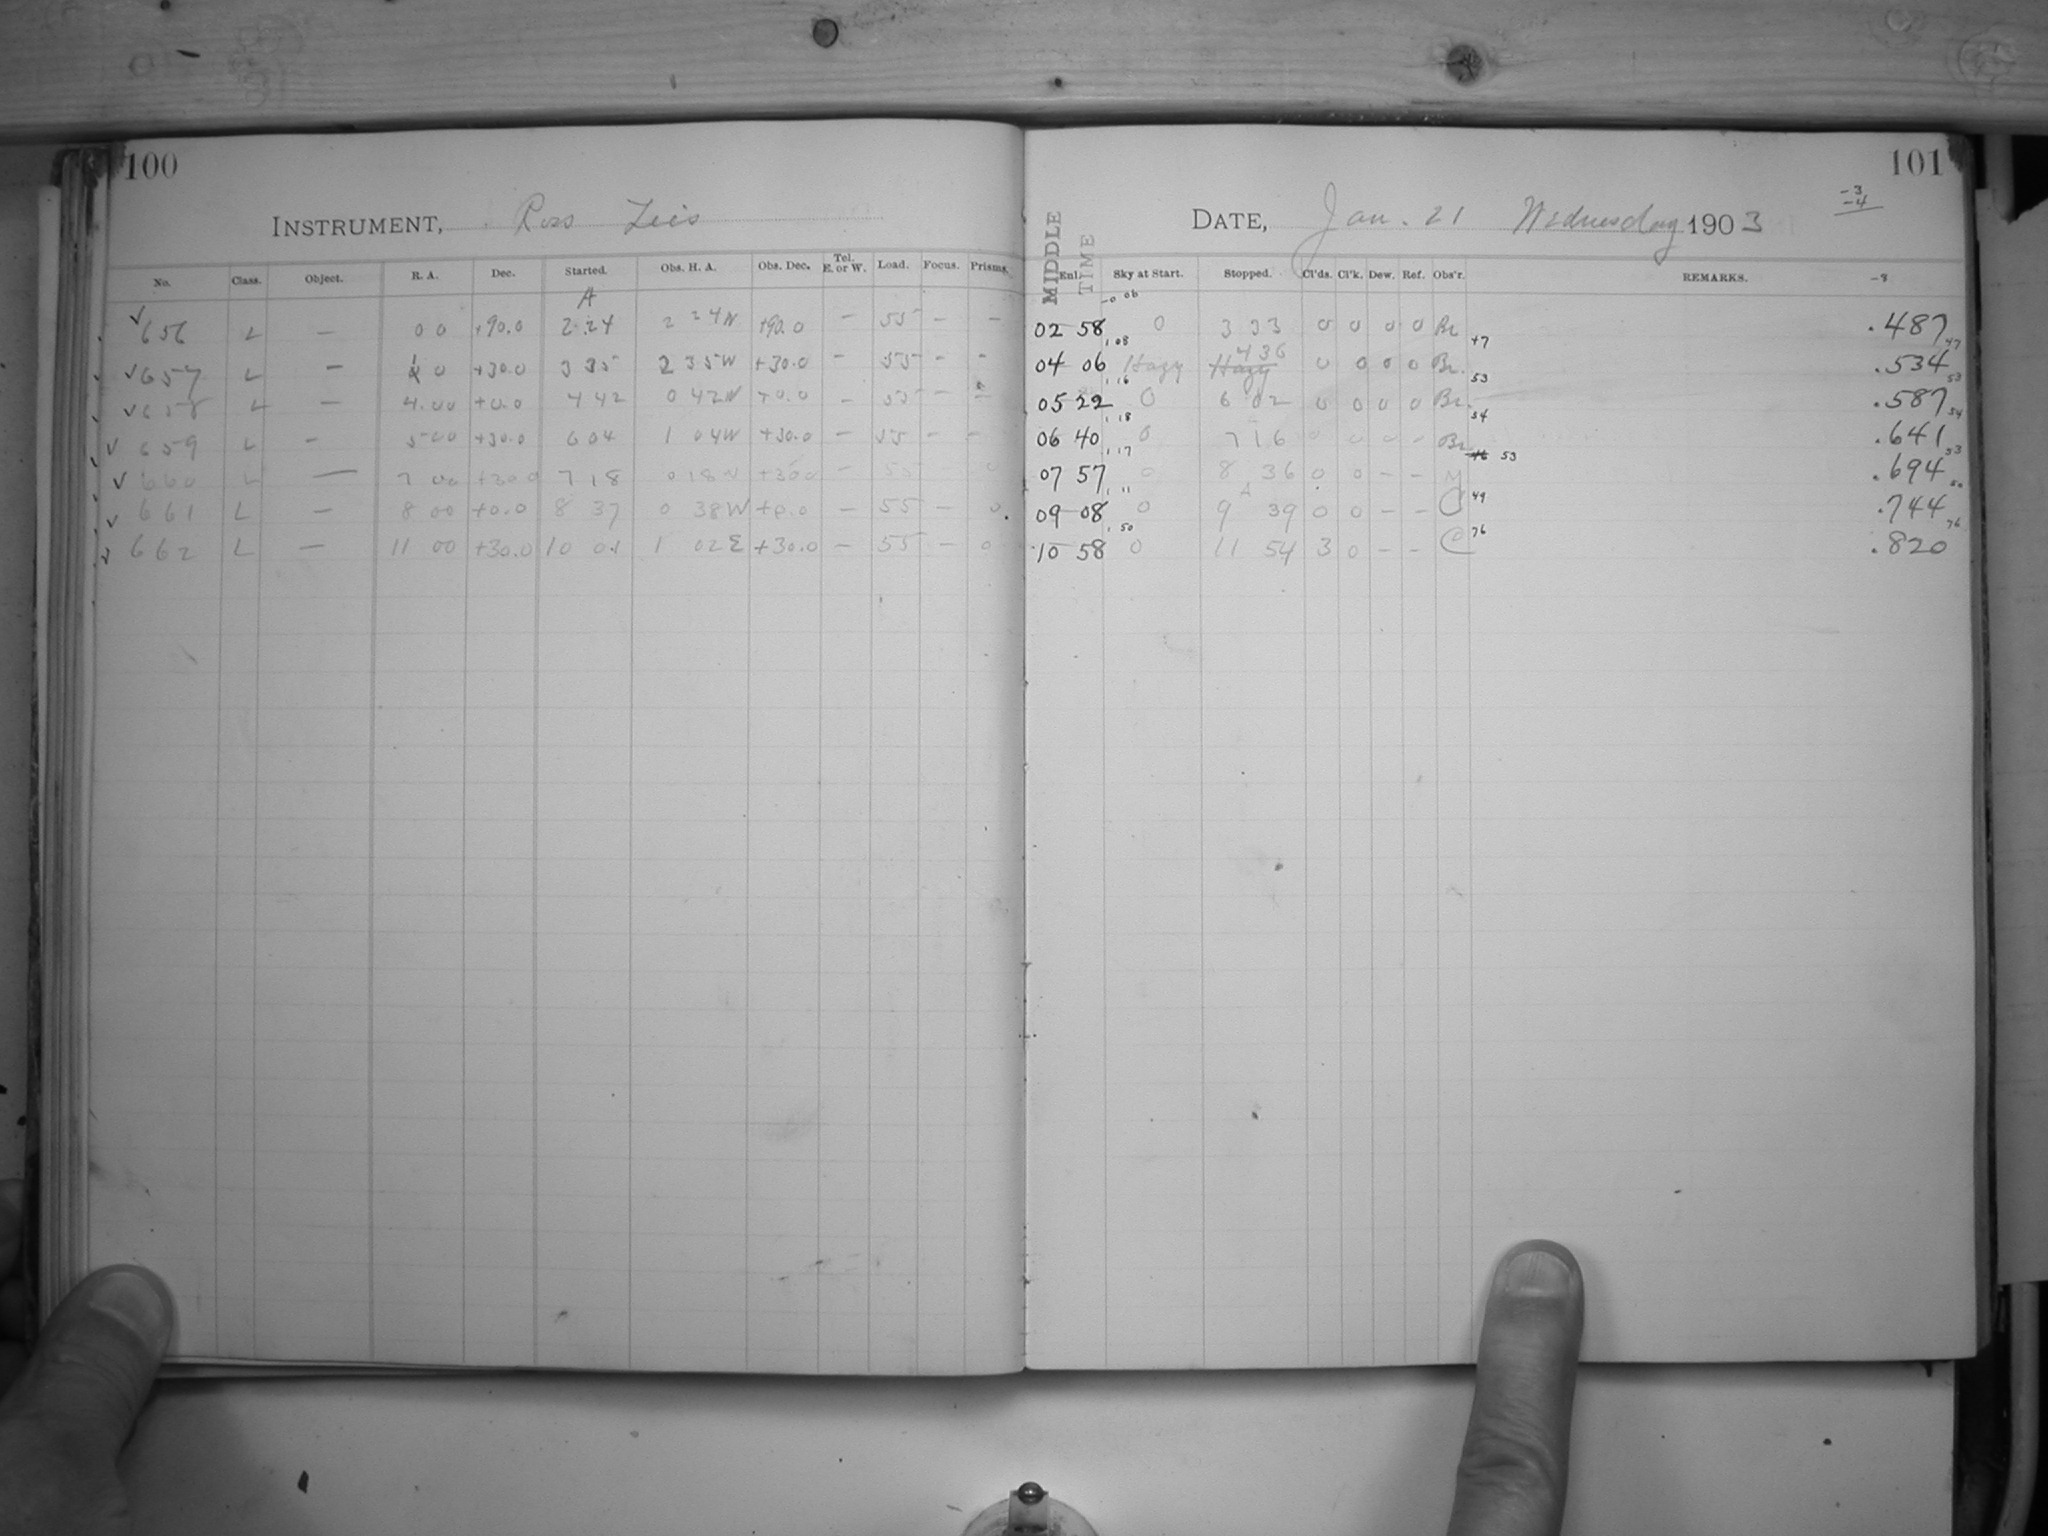 100
INSTRUMENT, Ross Zeis
No. Class. Object. R. A. Dec. Started. Obs. H. A. Obs. Dec. Tel. E. or W. Load. Focus. Prisms.
A
✓656 L — 0 0 +90.0 2 24 2 24W +90.0 — 55 — —
✓657 L — 1 0 +30.0 3 35 2 35W +30.0 — 55 — —
✓658 L — 4.00 +0.0 4 42 0 42W +0.0 — 55 — —
✓659 L — 5 00 +30.0 6 04 1 04W +30.0 — 55 — —
✓660 L — 7 00 +30.0 7 18 0 18W +30.0 — 55 0
✓661 L — 8 00 +0.0 8 37 0 38W +0.0 — 55 — 0
✓662 L — 11 00 +30.0 10 01 1 02E +30.0 — 55 — 0
101
-3
-4
DATE, Jan. 21 Wednesday 1903
MIDDLE TIME
Enl. Sky at Start. Stopped. Cl'ds. Cl'k. Dew. Ref. Obs'r. REMARKS. -8
-0 06
02 58 0 3 33 0 0 0 0 Br. .487 47
1,08 47
04 06 Hazy Hazy 4 36 0 0 0 0 Br. .534 53
1,16 53
05 22 0 6 02 0 0 0 0 Br. .587 54
1,18 54
06 40 0 7 16 0 0 0 — Br. .641 53
1,17 53
07 57 0 8 36 0 0 — — M .694 50
1,11 A 49
09 08 0 9 39 0 0 — — C .744 76
1,50 76
10 58 0 11 54 3 0 — — C .820